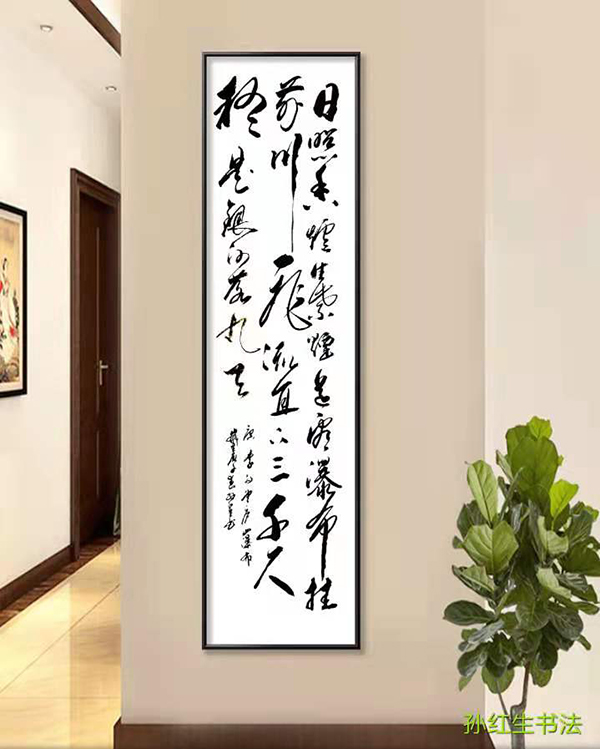 日照香爐生紫煙遥看瀑布挂
前川飛流直下三千尺
疑是銀河落九天
唐李白望庐山瀑布
孙红生书法